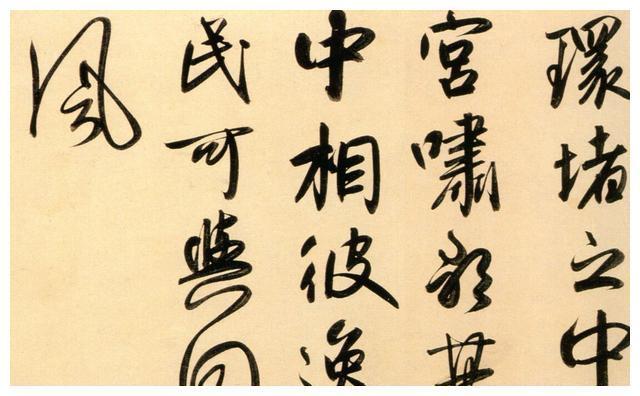 環堵之中
宮嘯歌其
中相彼逸
民可與同
風